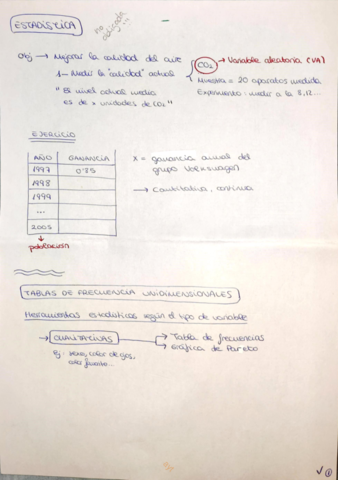 ESTADÍSTICA
no obligada
Obj → Mejorar la calidad del aire
1 – Medir la "calidad" actual
"El nivel actual medio
es de x unidades de CO₂"
CO₂ → Variable aleatoria (VA)
Muestra = 20 aparatos medida
Experimento: medir a la 8,12...
EJERCICIO
AÑO GANANCIA
1997 0'35
1998
1999
...
2005
población
X = ganancia anual del
grupo Volkswagen
→ Cuantitativa, continua
TABLAS DE FRECUENCIA UNIDIMENSIONALES
Herramientas estadísticas según el tipo de variable
→ CUALITATIVAS → Tabla de frecuencias
→ Gráfica de Pareto
Ej: color de